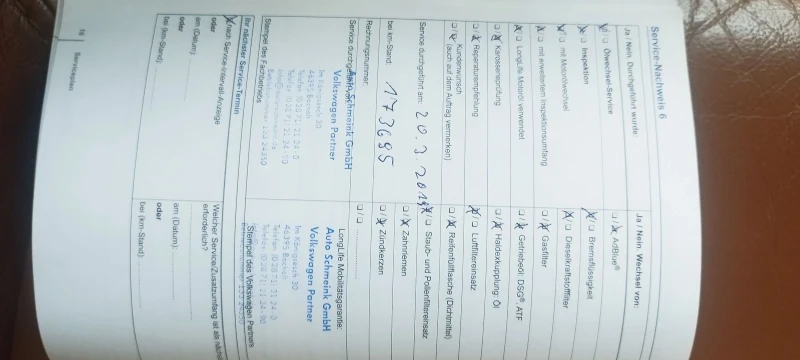 Service-Nachweis 6
Ja / Nein. Durchgeführt wurde:
Ölwechsel-Service
Inspektion
mit Motorölwechsel
mit erweitertem Inspektionsumfang
LongLife Motoröl verwendet
Karosserieprüfung
Reparaturempfehlung
Kundenwunsch
(auch auf dem Auftrag vermerken)
Service durchgeführt am: 20.3.2019
bei km-Stand: 173695
Rechnungsnummer:
Service durchgeführt
Auto Schmeink GmbH
Volkswagen Partner
Im Königsesch 30
46395 Bocholt
Telefon (0 28 71) 21 24-0
Stempel des Fachbetriebs
Ihr nächster Service-Termin
nach Service-Intervall-Anzeige
oder
am (Datum):
oder
bei (km-Stand):
16 Serviceplan
Ja / Nein. Wechsel von:
AdBlue®
Bremsflüssigkeit
Dieselkraftstofffilter
Gasfilter
Getriebeöl: DSG® ATF
Haldexkupplung: Öl
Luftfiltereinsatz
Reifenfüllflasche (Dichtmittel)
Staub- und Pollenfiltereinsatz
Zahnriemen
Zündkerzen
LongLife Mobilitätsgarantie:
Auto Schmeink GmbH
Volkswagen Partner
Im Königsesch 30
46395 Bocholt
Telefon (0 28 71) 21 24-0
Stempel des Volkswagen Partners
Welcher Service/Zusatzumfang ist als
erforderlich?
am (Datum):
oder
bei (km-Stand):